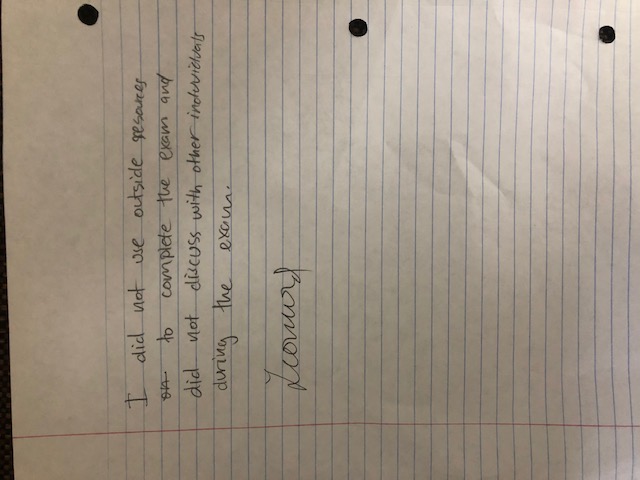 I did not use outside resources
on to complete the exam and
did not discuss with other induviduals
during the exam.
Leonard